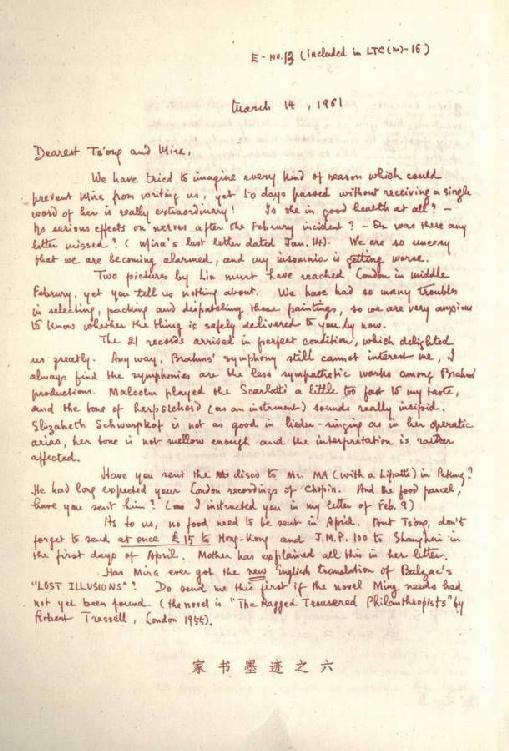 E - No. 13 (included in LTC (M)-16)
March 14, 1961
Dearest Ts'ong and Mira,
We have tried to imagine every kind of reason which could
prevent Mira from writing us, yet 50 days passed without receiving a single
word of her is really extraordinary! Is she in good health at all? -
No serious effects on nerves after the February incident? - Or was there any
letter missed? (Mira's last letter dated Jan. 14). We are so uneasy
that we are becoming alarmed, and my insomnia is getting worse.
Two pictures by Lin must have reached London in middle
February, yet you tell us nothing about. We have had so many troubles
in selecting, packing and dispatching those paintings, so we are very anxious
to know whether the thing is safely delivered to you by now.
The 21 records arrived in perfect condition, which delighted
us greatly. Anyway, Brahms' symphony still cannot interest me, I
always find the symphonies are the less sympathetic works among Brahms'
productions. Malcolm played the Scarlatti a little too fast to my taste,
and the tone of harpsichord (as an instrument) sounds really insipid.
Elizabeth Schwarzkopf is not as good in lieder-singing as in her operatic
arias, her tone is not mellow enough and the interpretation is rather
affected.
Have you sent the discs to Mr. MA (with a Lipatti) in Peking?
He had long expected your London recordings of Chopin. And the food parcel,
have you sent him? (as I instructed you in my letter of Feb. 9)
As to us, no food need to be sent in April. But Ts'ong, don't
forget to send at once £15 to Hong-Kong and J.M.P. 100 to Shanghai in
the first days of April. Mother has explained all this in her letter.
Has Mira ever got the new English translation of Balzac's
"LOST ILLUSIONS"? Do send me this first if the novel Ming needs had
not yet been found (the novel is "The Ragged Trousered Philanthropists" by
Robert Tressell, London 1955).
家书墨迹之六